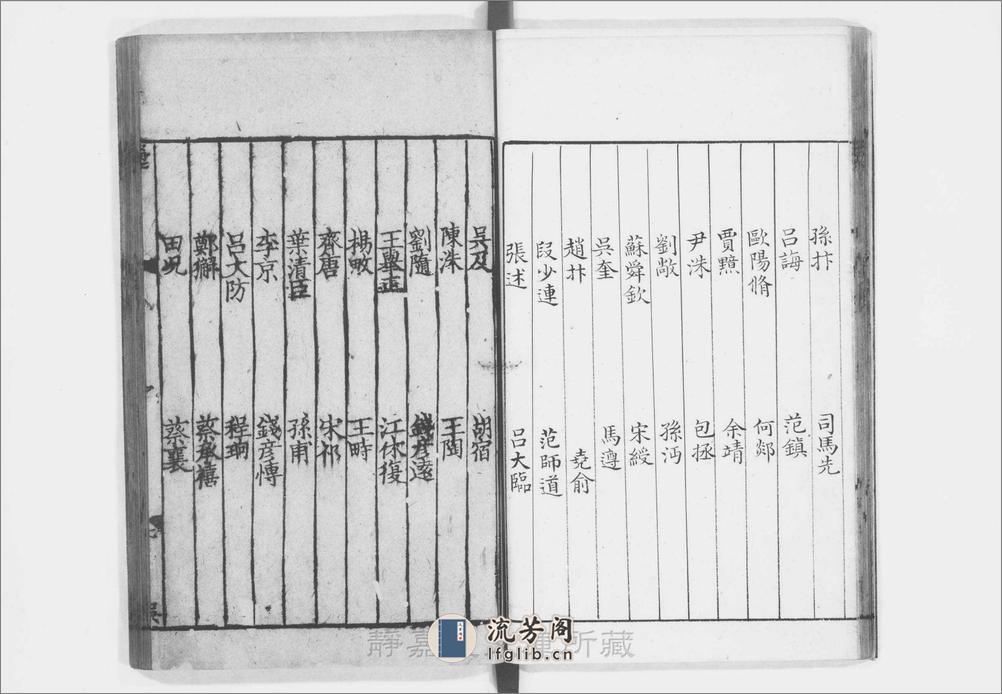 孫抃 司馬光
呂誨 范鎮
歐陽脩 何郯
賈黯 余靖
尹洙 包拯
劉敞 孫沔
蘇舜欽 宋綬
吳奎 馬遵
趙抃 堯俞
段少連 范師道
張述 呂大臨
吳及 胡宿
陳洙 王陶
劉隨 錢彥遠
王舉正 江休復
楊畋 王疇
齊唐 宋祁
葉清臣 孫甫
李京 錢彥愽
呂大防 程珦
鄭獬 蔡承禧
田況 蔡襄
吳
流芳阁
lfglib.cn
靜嘉 所藏